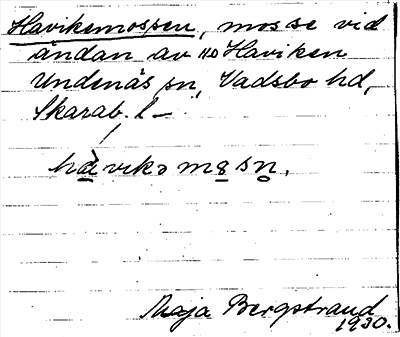 Havikemossen, mosse vid
ändan av no Haviken
Undenäs sn, Vadsbo hd,
Skarab. l –
Maja Bergstrand
1930.